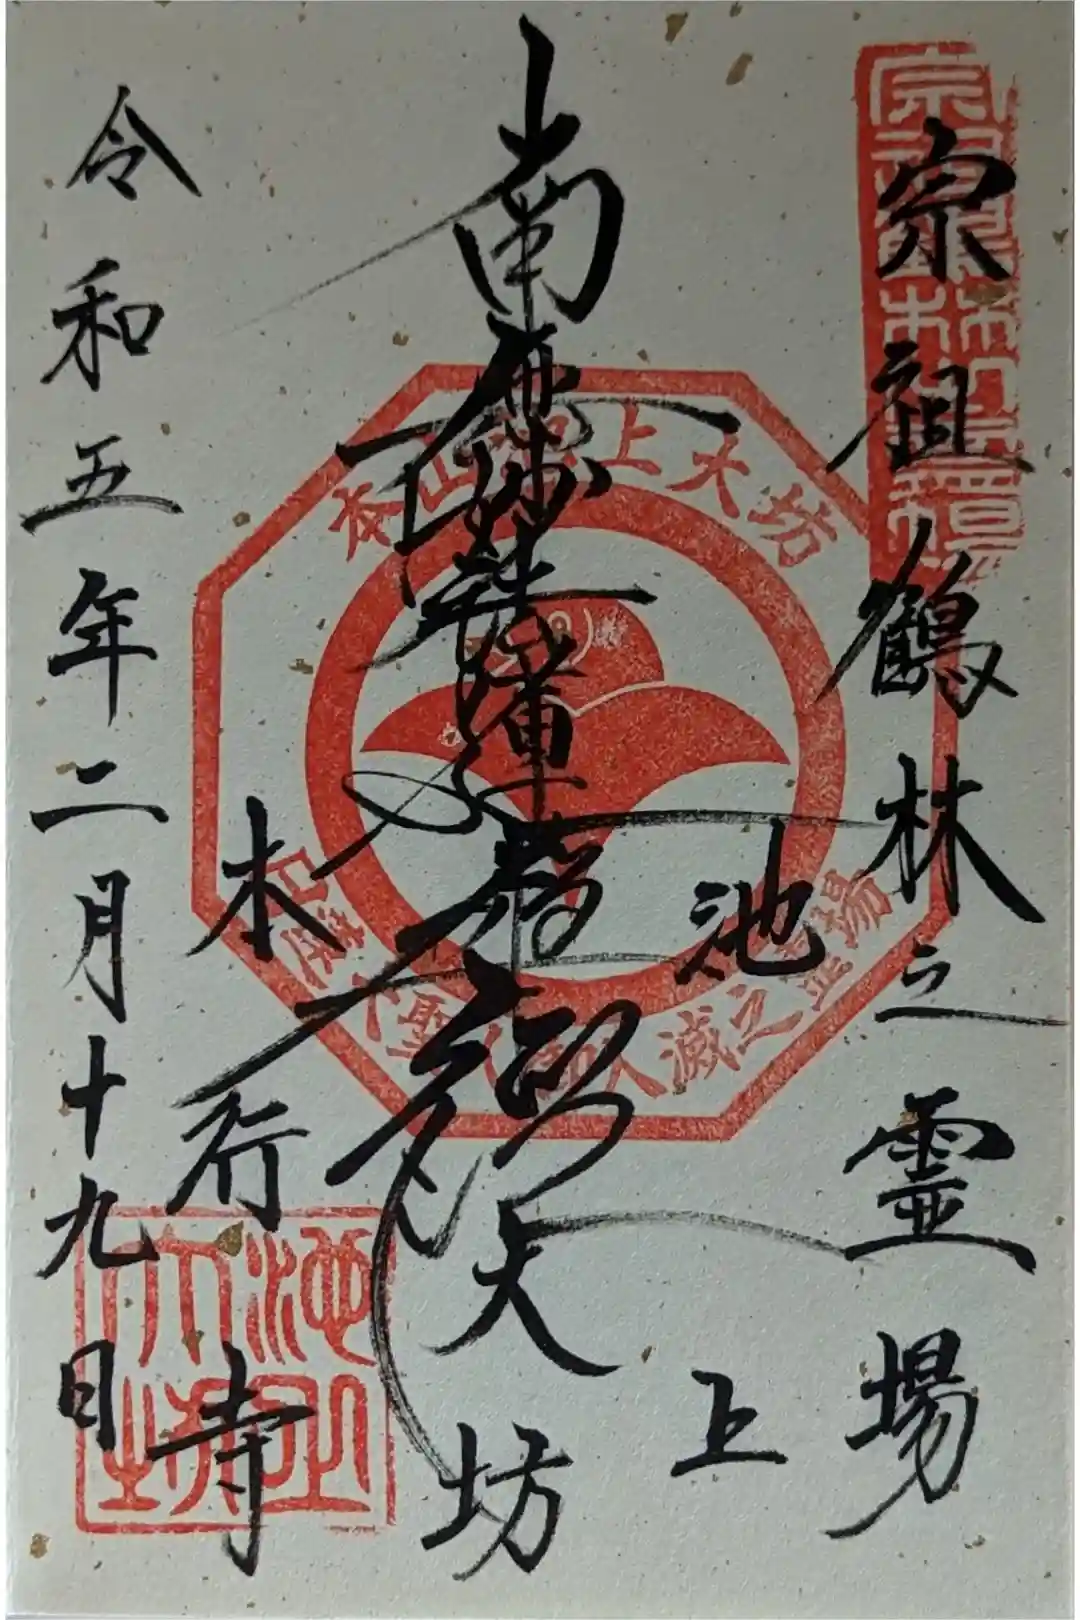 宗祖鶴林之霊場
南無妙法蓮華経
池上
大坊
本行寺
令和五年二月十九日
本山池上大坊
日蓮大聖人御入滅之霊場
池上
大坊